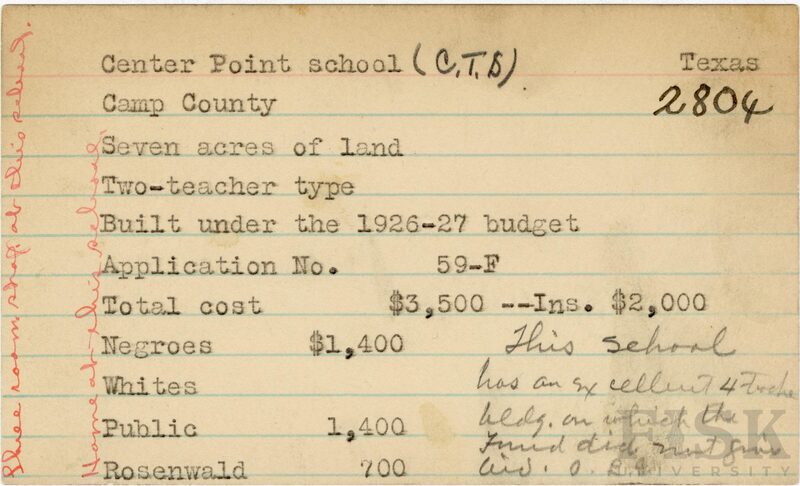 Center Point school (C.T.S) Texas
Camp County 2804
Seven acres of land
Two-teacher type
Built under the 1926-27 budget
Application No. 59-F
Total cost $3,500 --Ins. $2,000
Negroes $1,400 This school
Whites has an excellent 4-
Public 1,400 bldg. on which the
Fund did not give
Rosenwald 700 aid.
Three room shop at this school.
Home at this school.
FISK
UNIVERSITY